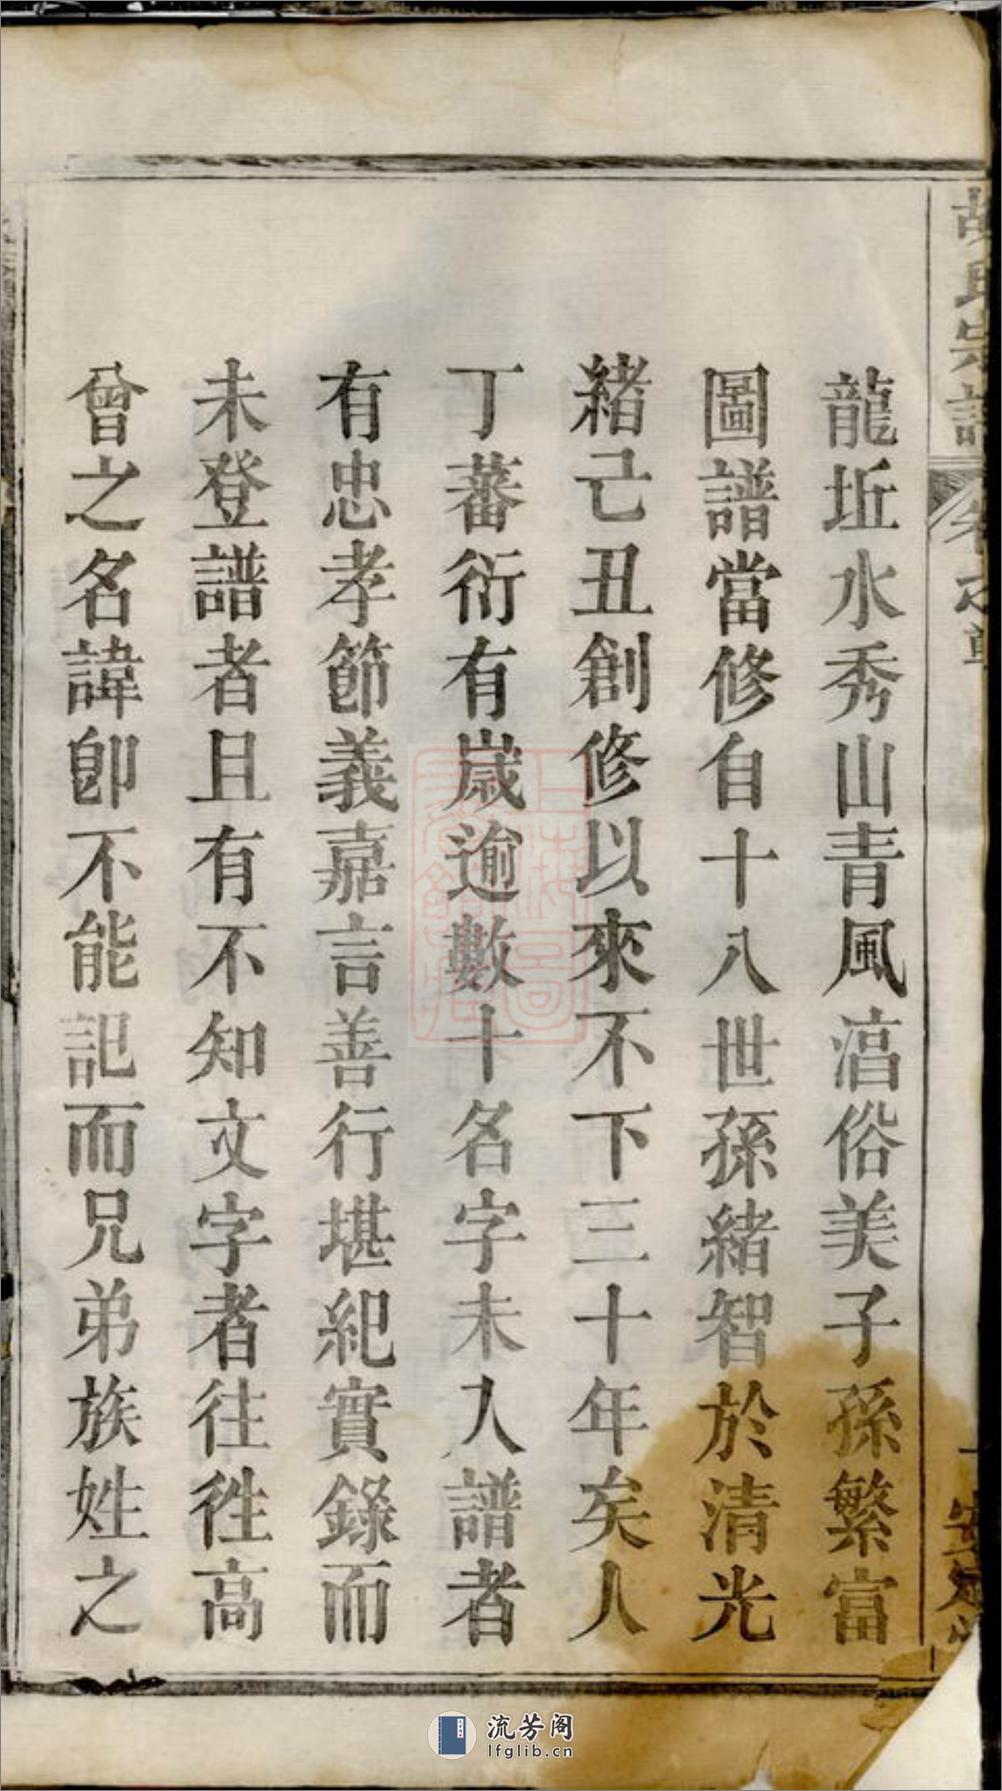 胡氏宗譜
龍坵水秀山青風湻俗美子孫繁富
圖譜當修自十八世孫緒智於清光
緒己丑創修以來不下三十年矣人
丁蕃衍有嵗逾數十名字未入譜者
有忠孝節義嘉言善行堪紀實錄而
未登譜者且有不知文字者往徃高
曾之名諱卽不能記而兄弟族姓之
流芳阁
lfglib.cn